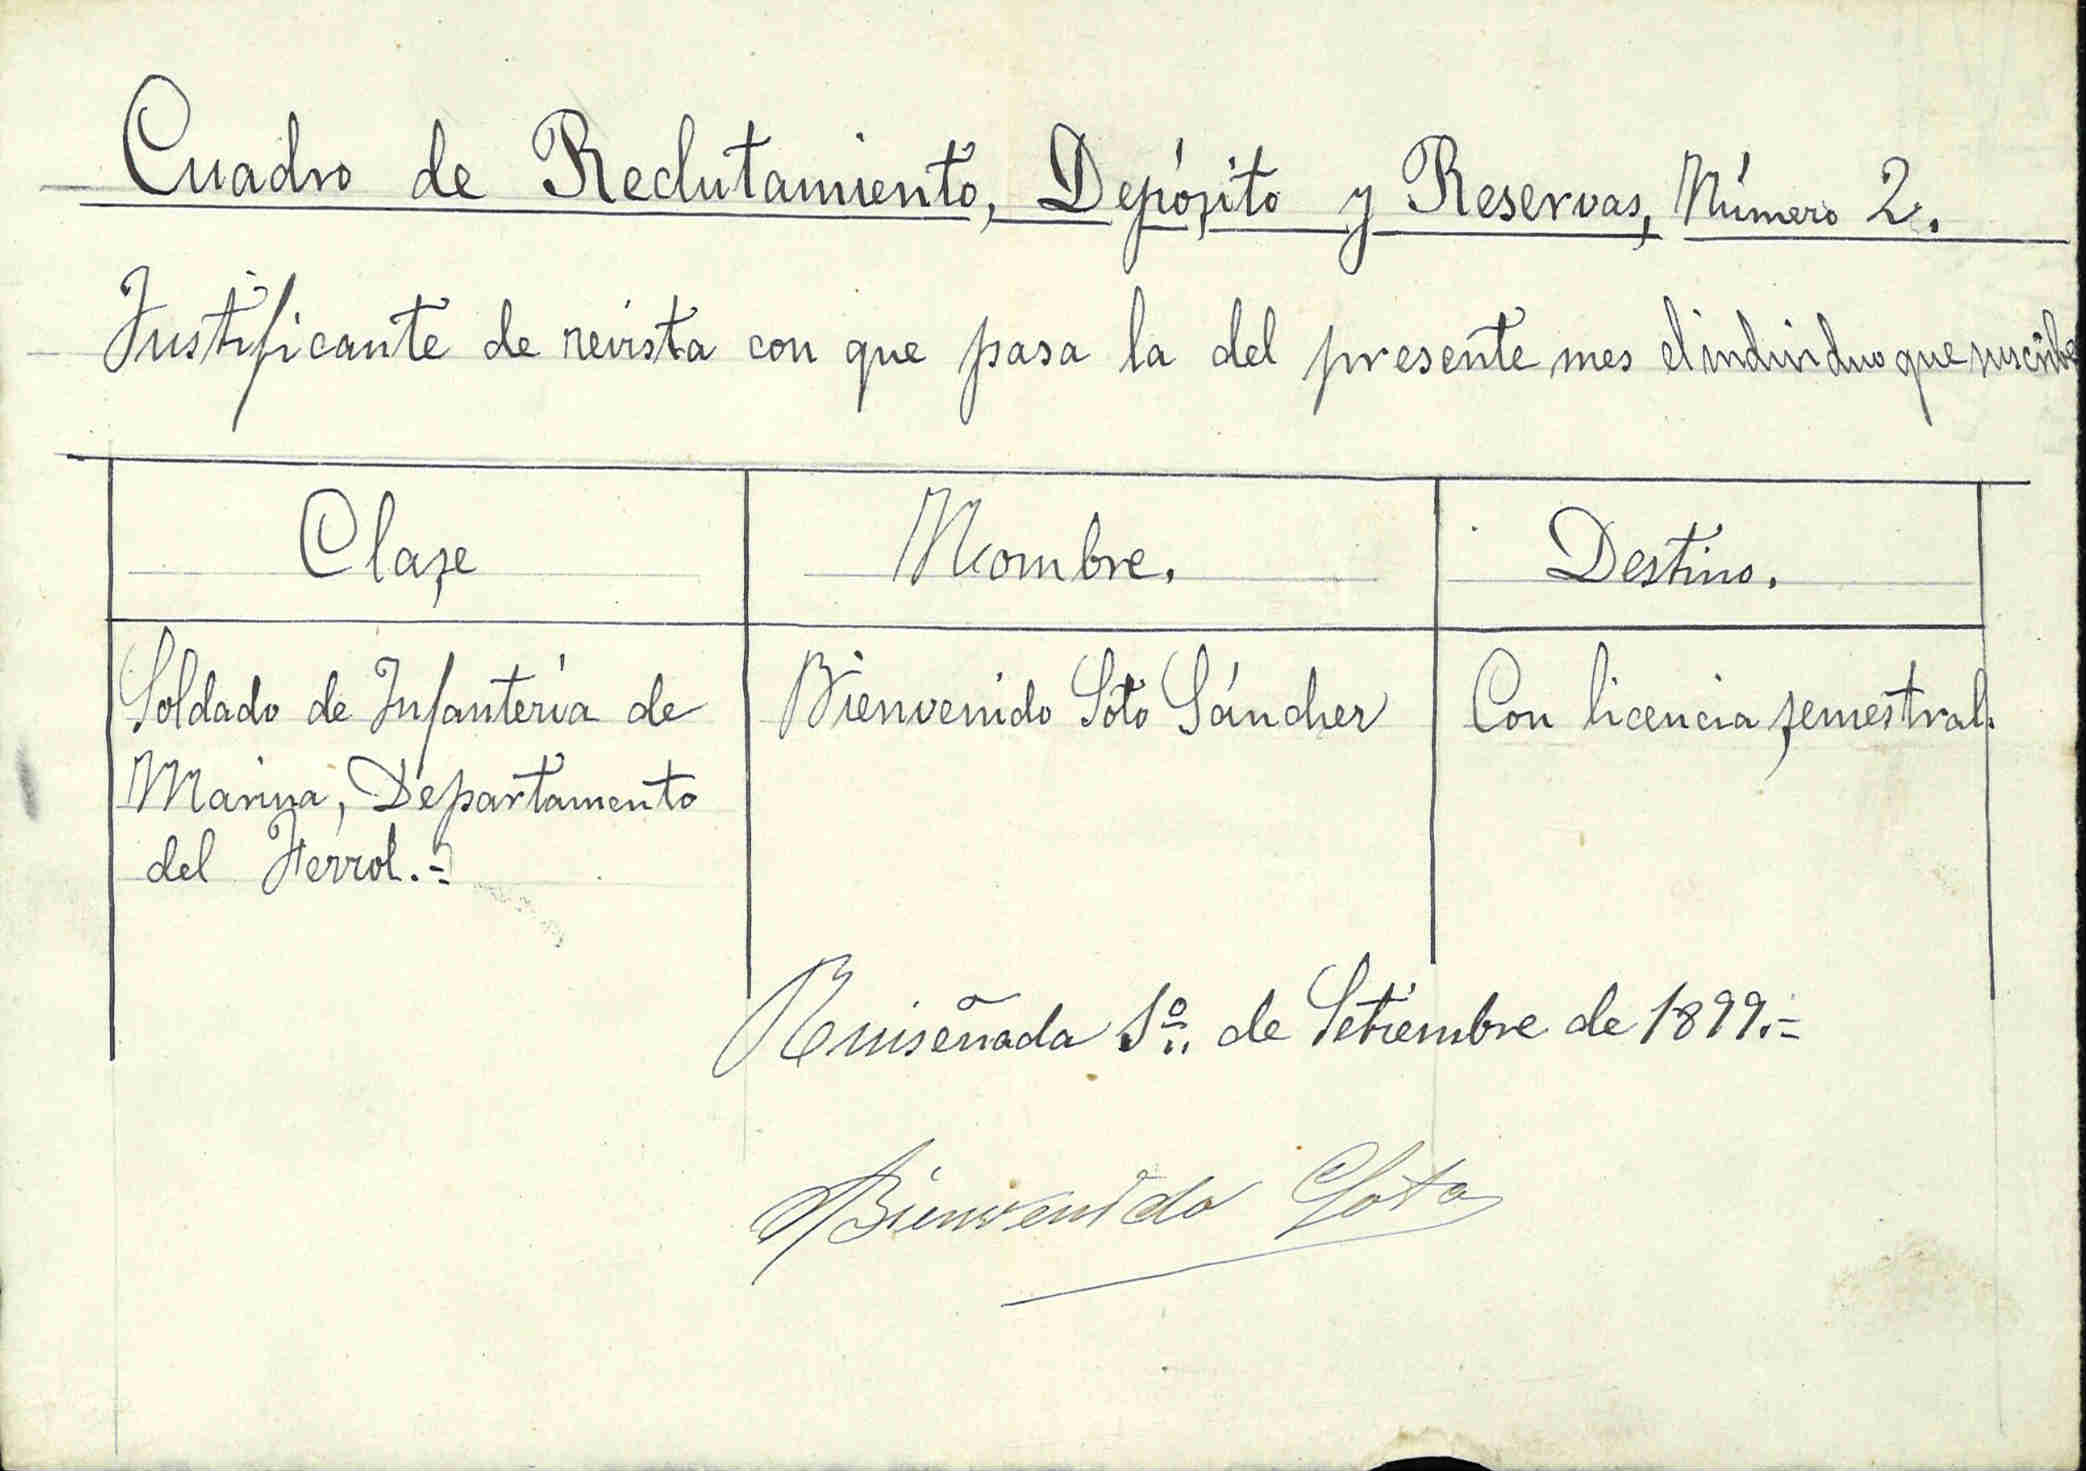 Cuadro de Reclutamiento, Depósito y Reservas, Número 2.
Justificante de revista con que pasa la del presente mes el individuo que suscribe
Clase Nombre. Destino.
Soldado de Infantería de Bienvenido Soto Sánchez Con licencia semestral.
Marina, Departamento
del Ferrol.=
Ruiseñada 1º. de Setiembre de 1899.=
Bienvenido Soto